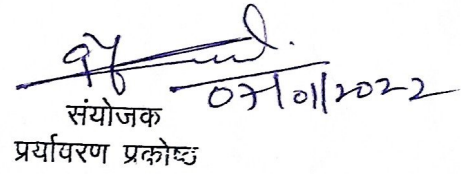 07/01/2022
संयोजक
प्रर्यावरण प्रकोष्ठ